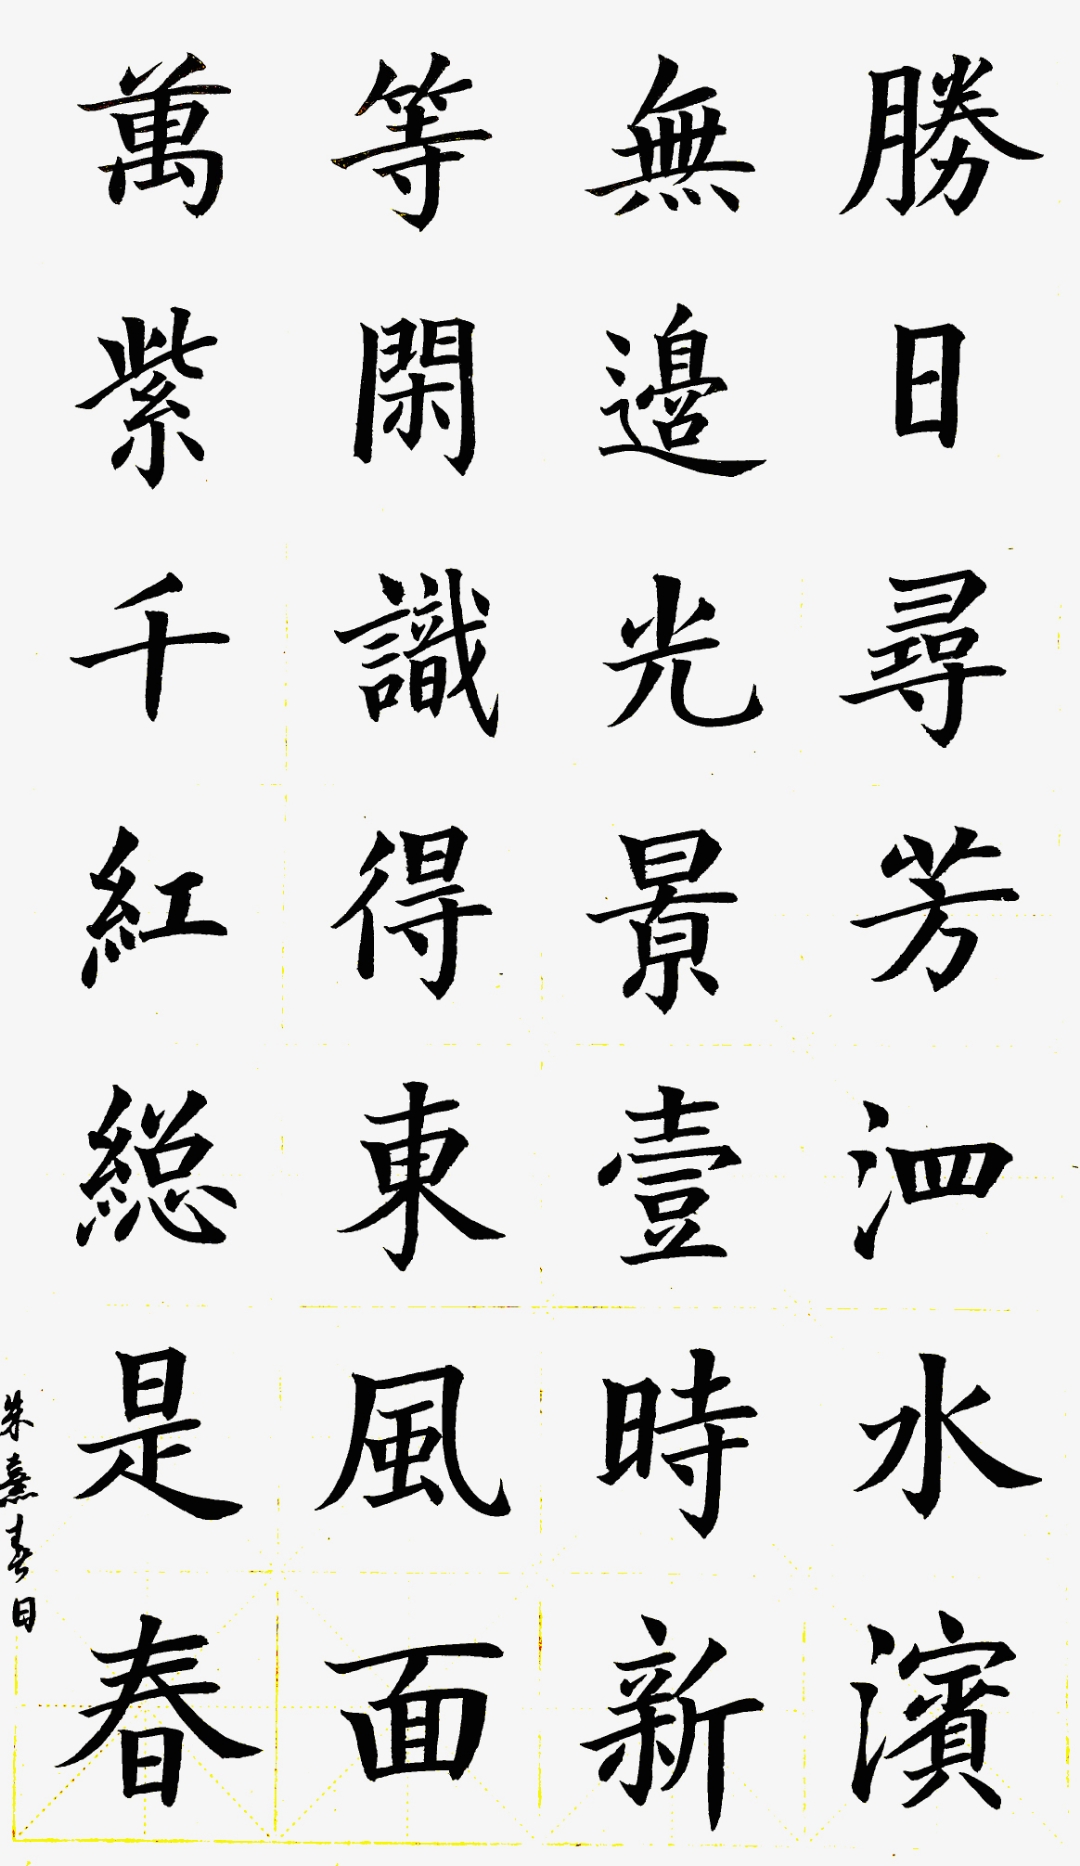 勝日尋芳泗水濱
無邊光景壹時新
等閑識得東風面
萬紫千紅総是春
朱熹春日